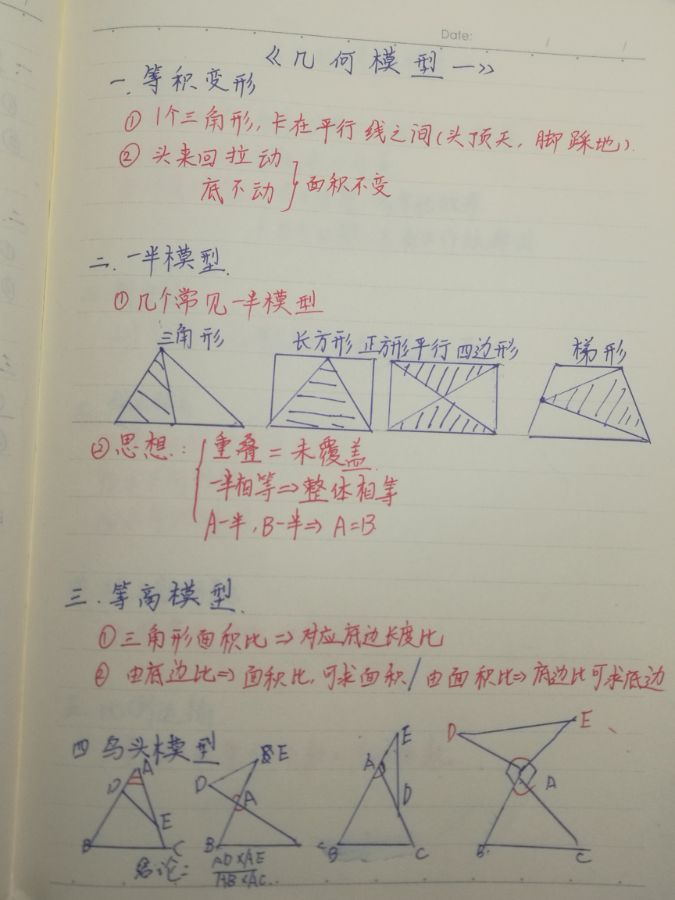 Date:
《几何模型一》
一.等积变形
① 1个三角形,卡在平行线之间(头顶天,脚踩地).
② 头来回拉动
底不动 } 面积不变
二.一半模型.
① 几个常见一半模型
三角形 长方形 正方形 平行四边形 梯形
② 思想: { 重叠=未覆盖
一半相等⇒整体相等
A一半,B一半⇒A=B
三.等高模型.
① 三角形面积比⇒对应底边长度比
② 由底边比⇒面积比,可求面积/由面积比⇒底边比可求底边
四 鸟头模型
A D E B C
E D A B C
E A D B C
D E A B C
结论: AD×AE
AB×AC